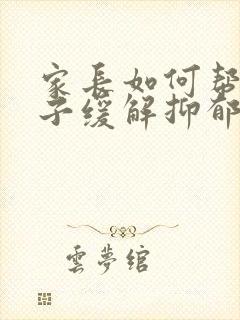 家长如何帮
子缓解抑郁
雲夢绾